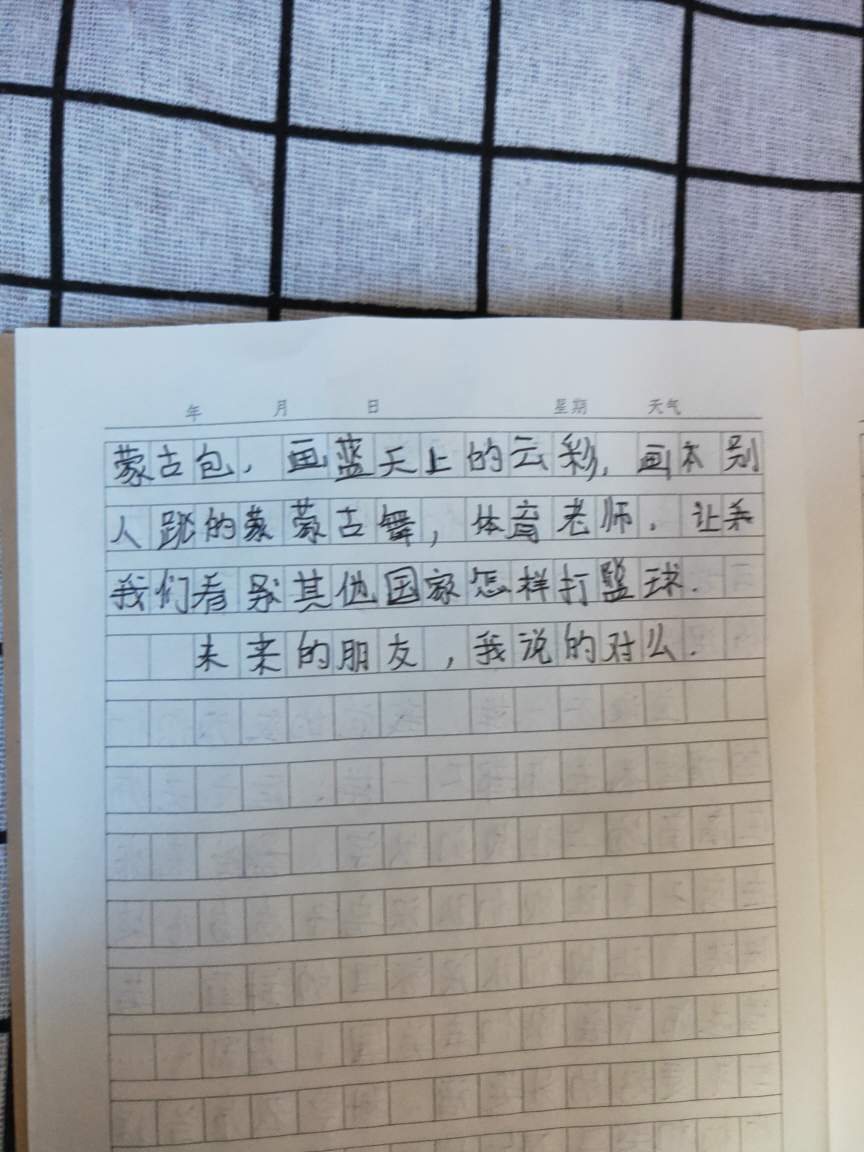 年 月 日 星期 天气
蒙古包，画蓝天上的云彩，画本别
人跳的蒙蒙古舞，体育老师．让
我们看别其他国家怎样打篮球．
未来的朋友，我说的对么．